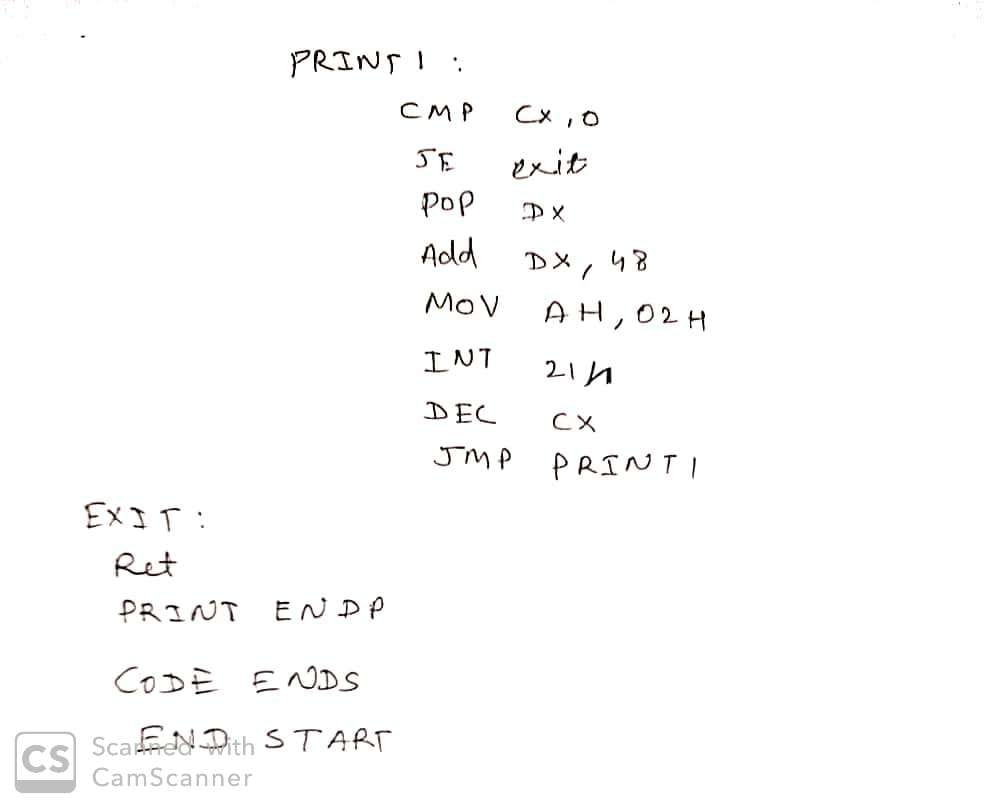 PRINT1 :
CMP CX,0
JE exit
POP DX
Add DX, 48
MOV AH, 02H
INT 21h
DEC CX
JMP PRINT1
EXIT :
Ret
PRINT ENDP
CODE ENDS
END START
CS Scanned with
CamScanner